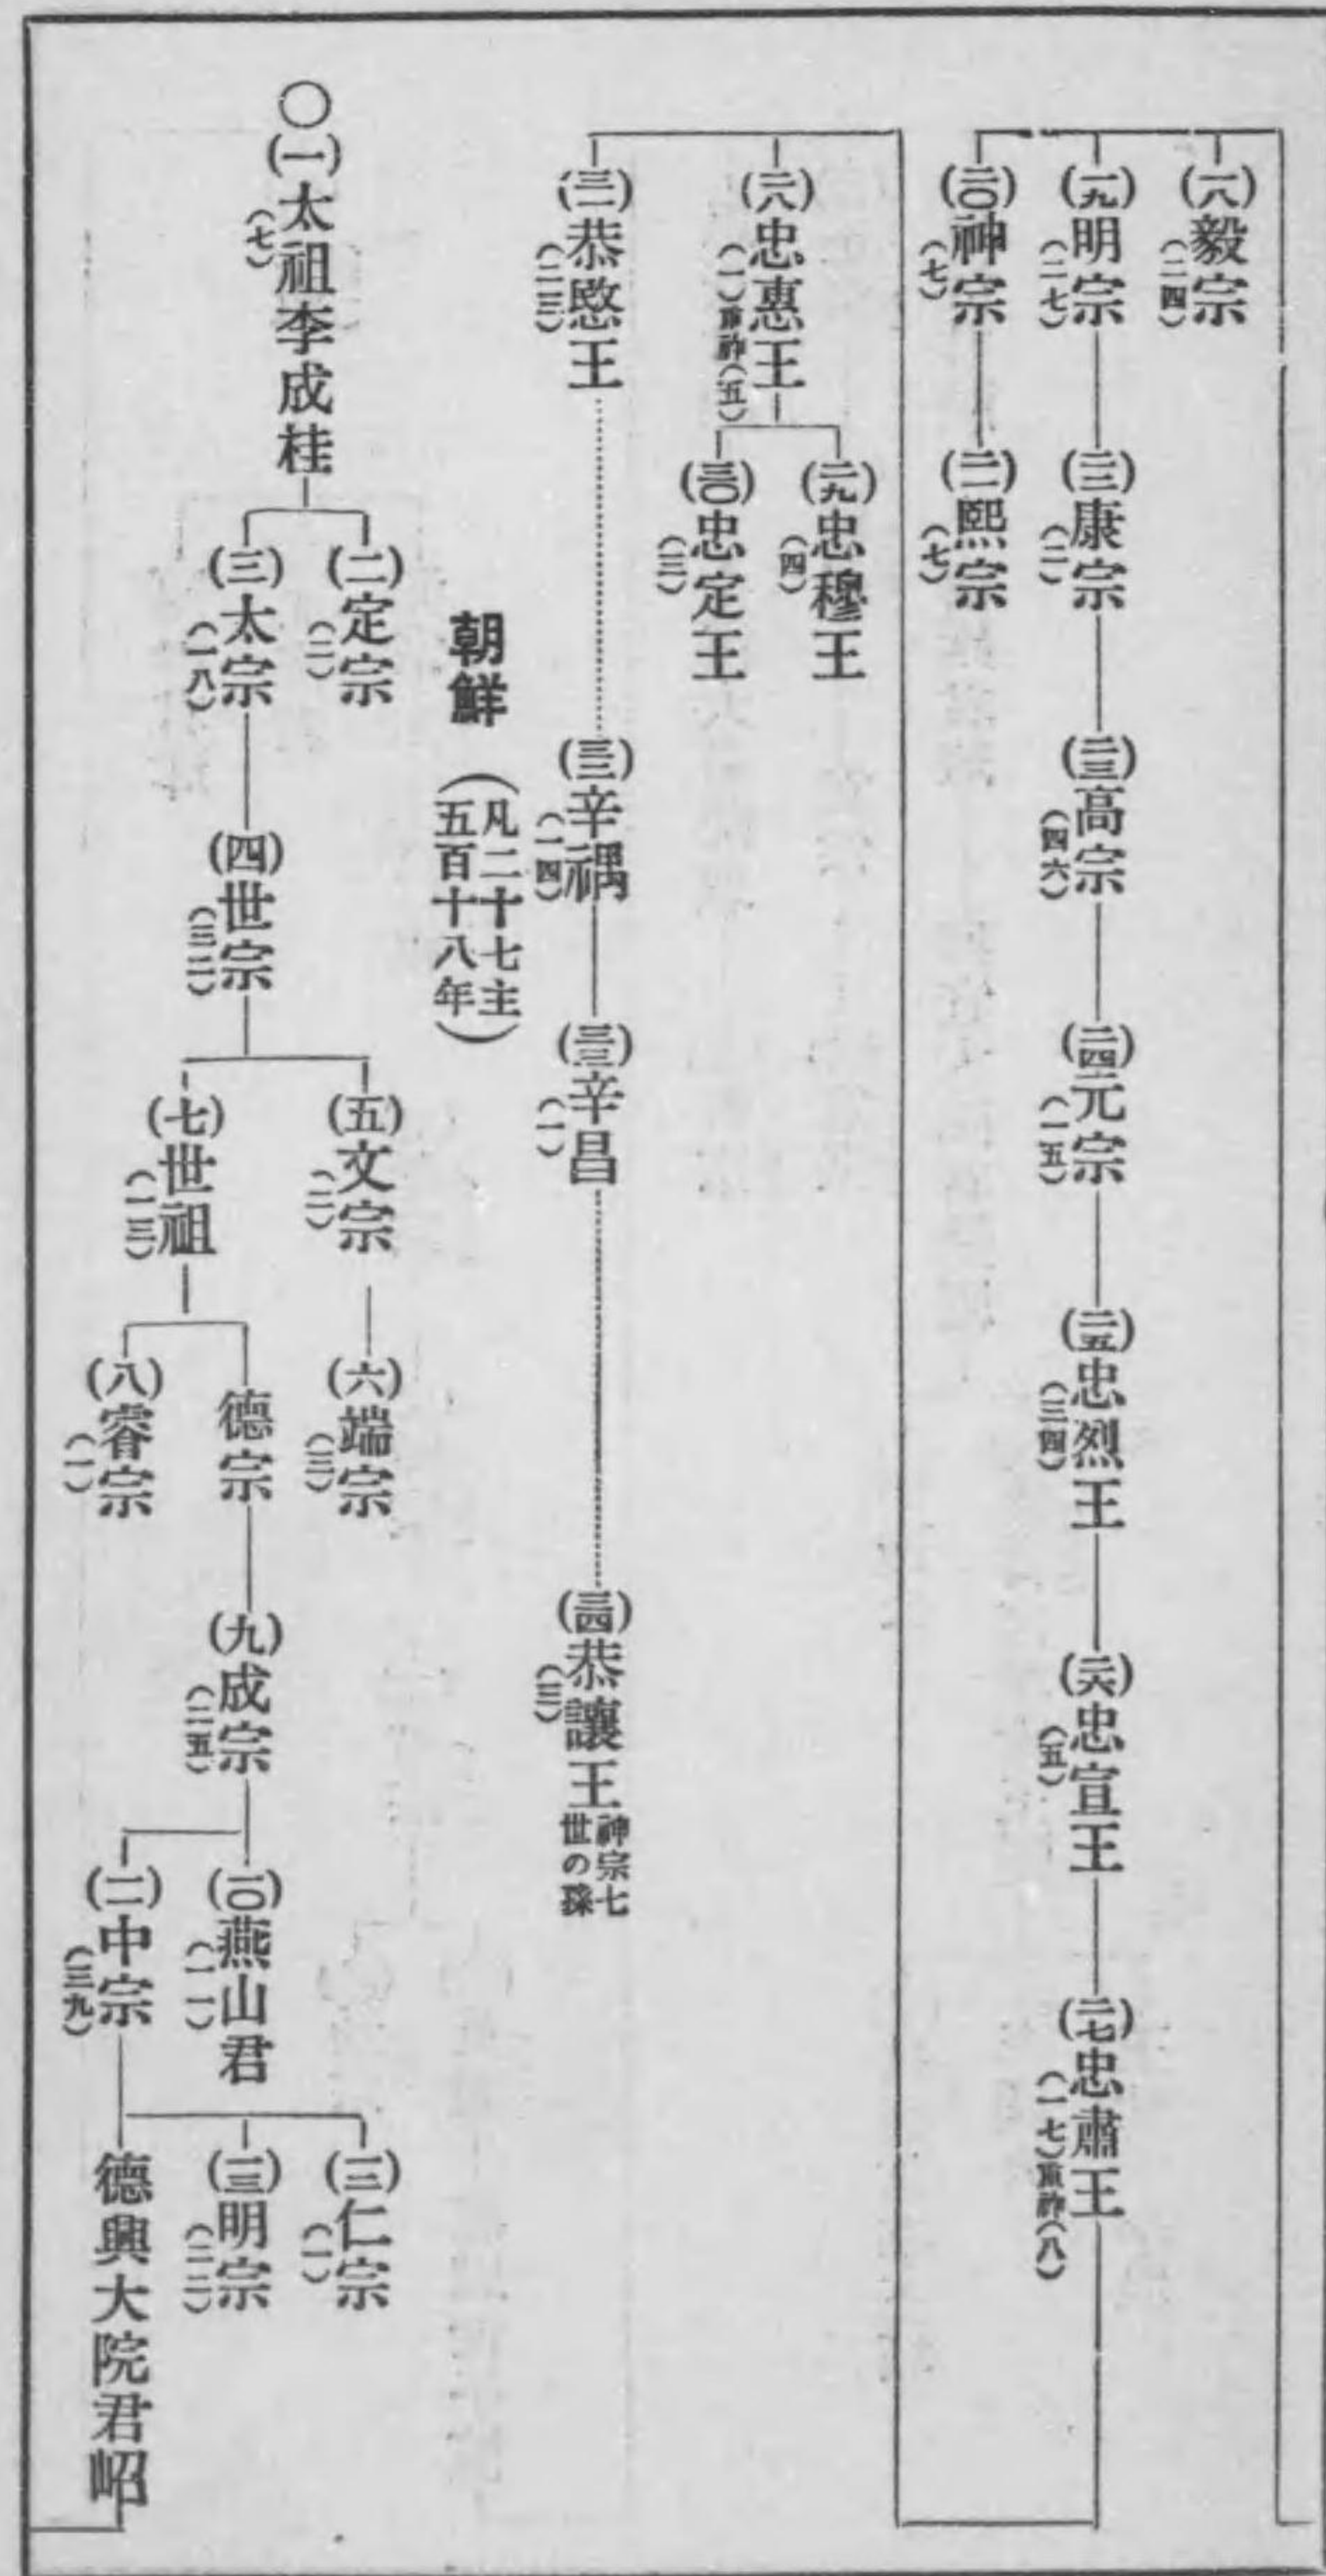 (一八)毅宗
(二四)
(一九)明宗
(二七)
(二二)康宗
(二)
(二三)高宗
(四六)
(二四)元宗
(一五)
(二五)忠烈王
(三四)
(二六)忠宣王
(五)
(二七)忠肅王
(一七)重祚(八)
(二〇)神宗
(七)
(二一)熙宗
(七)
(二八)忠惠王
(一)重祚(五)
(二九)忠穆王
(四)
(三〇)忠定王
(三)
(三一)恭愍王
(二三)
(三二)辛禑
(一四)
(三三)辛昌
(一)
(三四)恭讓王
(三)
神宗七
世の孫
朝鮮
(凡二十七主
五百十八年)
〇(一)太祖李成桂
(七)
(二)定宗
(二)
(三)太宗
(一八)
(四)世宗
(三二)
(五)文宗
(二)
(六)端宗
(三)
(七)世祖
(一三)
德宗
(八)睿宗
(一)
(九)成宗
(二五)
(一〇)燕山君
(一一)
(一一)中宗
(三九)
(一二)仁宗
(一)
(一三)明宗
(二二)
德興大院君岹